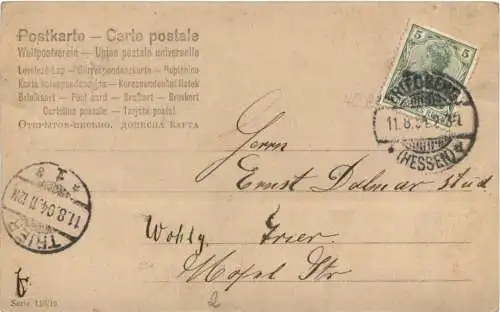 Postkarte — Carte postale
Weltpostverein — Union postale universelle
Levelező-Lap — Correspondenzkarte — Dopisnice
Karta korespondencyjna — Korespondenční lístek
Briefkaart — Post card — Brefkort — Brevkort
Cartolina postale — Tarjeta postal
ОТКРЫТОЕ-ПИСЬМО. ДОПИСНА КАРТА
5 5
FRIEDBERG
11.8.04
(HESSEN)
Herrn
Ernst Dalmar stud
Wohlg. Trier
Mosel Str
TRIER
11.8.04.11-12N
* 1 g
2
Serie